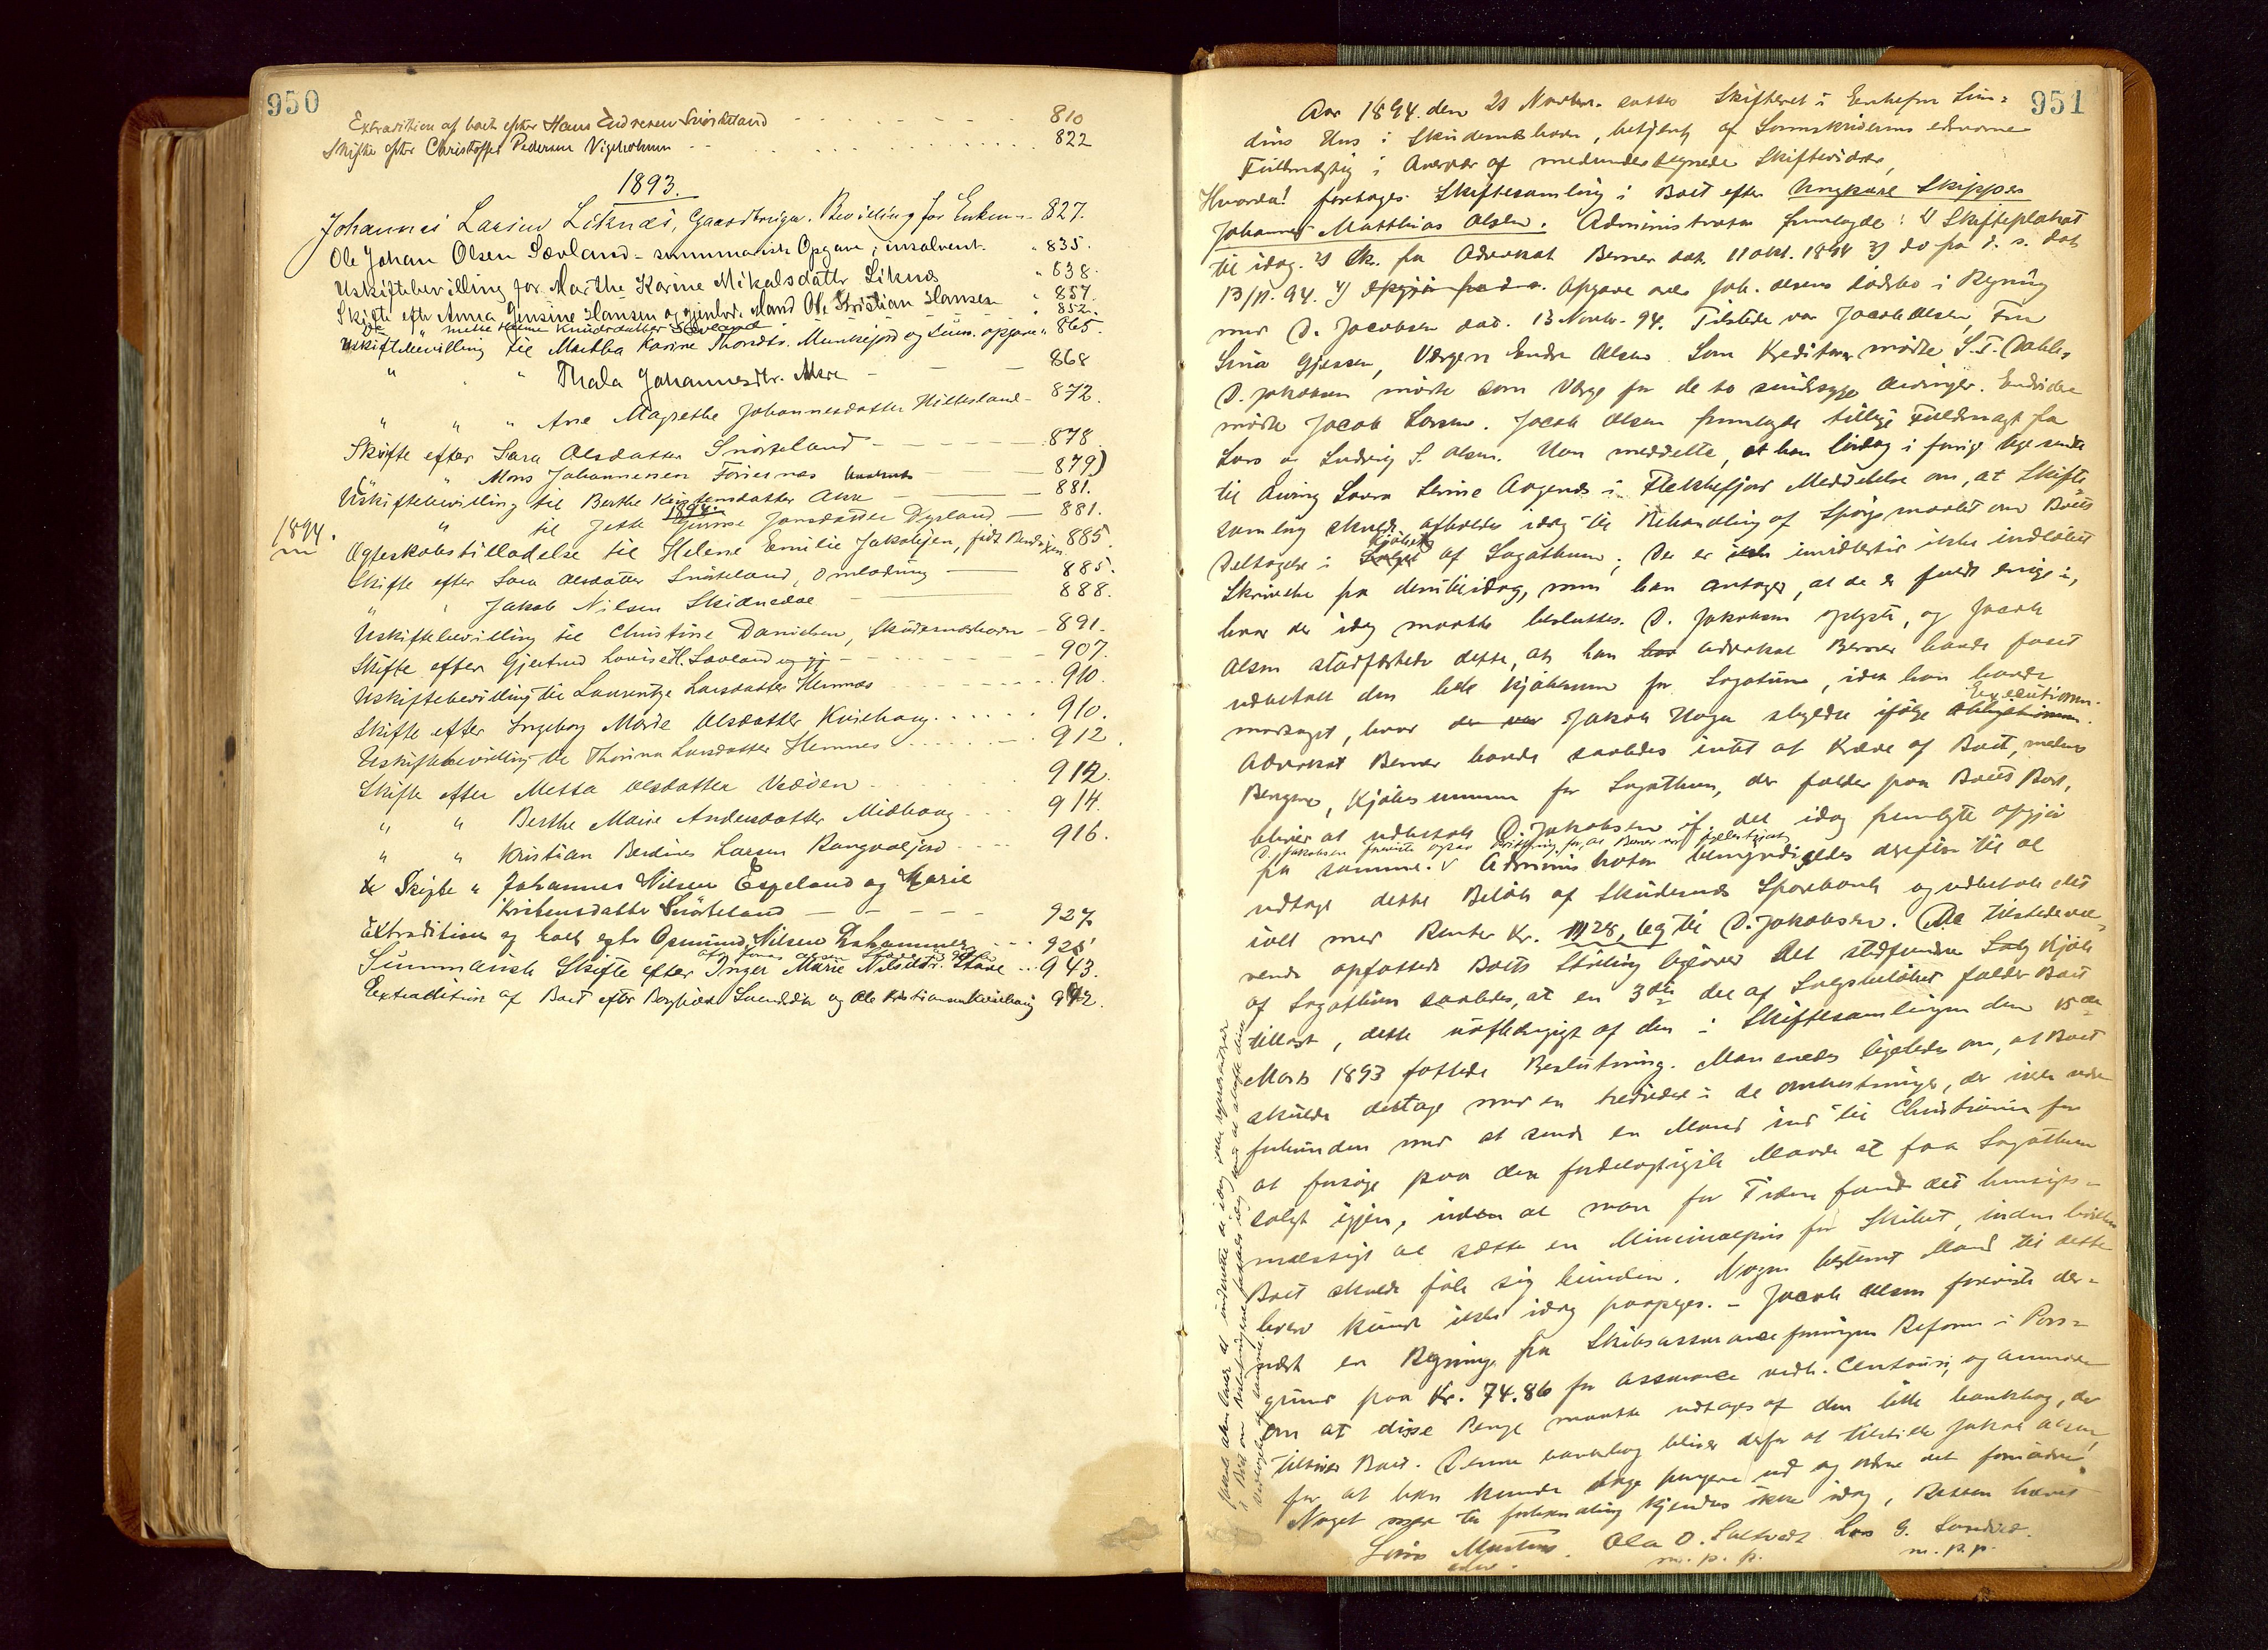 950
Extradition af boet efter Hans Endresen Snörteland - - - - - - 810
Skifte efter Christoffer Pedersen Vigeholmen - - . . . . . . . 822
1893.
Johannes Larsen Liknæs, Gaardbruger. Bevilling for Enken - - 827.
Ole Johan Olsen Sævland - summarisk Opgave; insolvent. " 835.
Uskiftebevilling for Marthe Karine Mikalsdatter Liknæs " 838.
Skifte eftr Anna Jensine Hansen og gjenlev. Mand Ole Kristian Hansen " 857.
Do " Mette Helene Knudsdatter Sævland " 852.
Uskiftebevilling til Martha Karine Thorsdtr. Munkejord og Sum. opgave " 865
" " " Thala Johannesdtr. Mere - - - 868
" " " Ane Magrethe Johannesdatter Hillesland - 872.
Skifte efter Sara Olsdatter Snörteland - - - - 878
" " Mons Johannesen Fosenæs - 879)
Uskiftebevilling til Berthe Kristensdatter - 881.
1894.
" til Jette Gurine Jonsdatter Dysland - 881.
1894.
Ægteskabstilladelse til Helene Emilie Jakobsen, født Bendixen 885.
Skifte efter Sara Olsdatter Snörteland, Omlodning - 885.
" " Jakob Nilsen Skidnedal - 888.
Uskiftebevilling til Christine Danielsen, Skudesneshavn - 891.
Skifte efter Gjertrud Lovise H. Sævland og gj - - - 907.
Uskiftebevilling til Laurentze Larsdatter Hemnes - - - 910.
Skifte efter Ingeborg Marie Olsdatter Kvilhaug . . . . . 910.
Uskiftebevilling til Thorina Larsdatter Hemnes . . . . 912.
Skifte efter Metta Olsdatter Vedöen . . . 912.
" " Berthe Marie Andersdatter Midhaug . . 914.
" " Kristian Berdines Larsen Rangvaljord - - - 916.
Skifte " Johannes Nilsen Espeland og Marie
Kristensdatter Snörteland - - - - 927
Extradition og boet efter Osmund Nilsen Dahammer . . . 925
Summarisk Skifte efter Inger Marie Nilsdtr. Stave . . . 943.
Extradition af Boet efter Borghild Svendsdtr og Ole Kristiansen Kvilhaug 942.
951
Aar 1894 den 21 Novbr. sattes Skifteret i Enkefru Lun=
dins Hus i Skudesneshavn, betjent af Sorenskriverens edsvorne
Fuldmægtig i Overvær af medundertegnede Skiftevidner,
Hvorda! foretoges Skiftesamling i Boet efter Ungkarl Skipper
Johannes Matthias Olsen. Administrator fremlagde: 1) Skifteplakat
til idag. 2) Sk. fra Advokat Berner dat. 11 Okt. 1894 3) do fra d. s. dat
13/11. 94. 4) Opgave over Joh. Olsens Dødsbo i Regning
med D. Jacobsen dat. 13 Novbr. 94. Tilstede var Jacob Olsen, Fru
Lina Gjessen, Værgen Endre Olsen. Som Kreditor mødte S. T. Dahle,
D. Jakobsen mødte som Værge for de to sindssyge Arvinger. Endvidere
mødte Jacob Larsen. Jacob Olsen fremlagde tillige Fuldmagt fra
Lars og Ludvig S. Olsen. Han meddelte, at han lørdag i forrige Uge sendte
til Arving Laura Levine Aagenæs i Flekkefjord Meddelelse om, at Skifte
samling skulde afholdes idag til Behandling af Spørgsmaalet om Boets
Deltagelse i Kjøbet af Sagathun; Der er imidlertid ikke indløbet
Skrivelse fra denne til idag, men han antager, at de er fuldt enige i,
hvad der idag maatte besluttes. D. Jakobsen oplyste, og Jacob
Olsen stadfæstede dette, at han Advokat Berner havde faaet
udbetalt den hele Kjøbesum for Sagatun, idet han havde
modtaget, hvad Jakob Haga skyldte ifølge Executionen.
Advokat Berner havde saaledes intet at kræve af Boet, medens
Bergene, Kjøbesummen for Sagathun, der falder paa Boets Part,
bliver at udbetale D. Jakobsen if. det idag fremlagte opgjør
fra samme. Administrator bemyndigedes derfor til at
udtage dette Beløb af Skudesnæs Sparebank og udbetale det
idet med Renter Kr. til D. Jakobsen. De tilstedevæ-
rende opfattede Boets Stilling ligeover det stedfundne Kjøb
af Sagathun saaledes, at en 3die del af Salgsbeløbet falder Boet
tillast, dette uafhængigt af den i Skiftesamlingen den 15de
Marts 1893 fattede Beslutning. Man enedes ligeledes om, at Boet
skulde deltage med en trediedel i de omkostninger, der ville være
forbunden med at sende en Mand ind til Christiania for
at forsøge paa den fordelagtigste Maade at faa Sagathun
solgt igjen, uden at man for Tiden fandt det hensigts-
mæssigt at sætte en Minimalpris for Skibet, inden hvilken
Boet skulde føle sig bunden. Nogen bestemt Mand til dette
hverv kunde ikke idag paapeges. - Jacob Olsen foreviste der-
næst en Regning fra Skibsassuranceforeningen Reform i Pors-
grund paa Kr. 74.86 for assurance vedk. Centauri, og anmodede
om at disse Penge maatte udtages af den lille bankbog, der
tilhører Boet. Denne bankbog bliver derfor at tilstille Jakob Olsen,
for at han kunde tage pengene ud og ordne det fornødne.
Noget mere til forhandling kjendtes ikke idag, Retten hævet
Lars Mustens Ola O. Saltvedt Lars G. Sandved.
edsv. m. p. p. m. p. p.